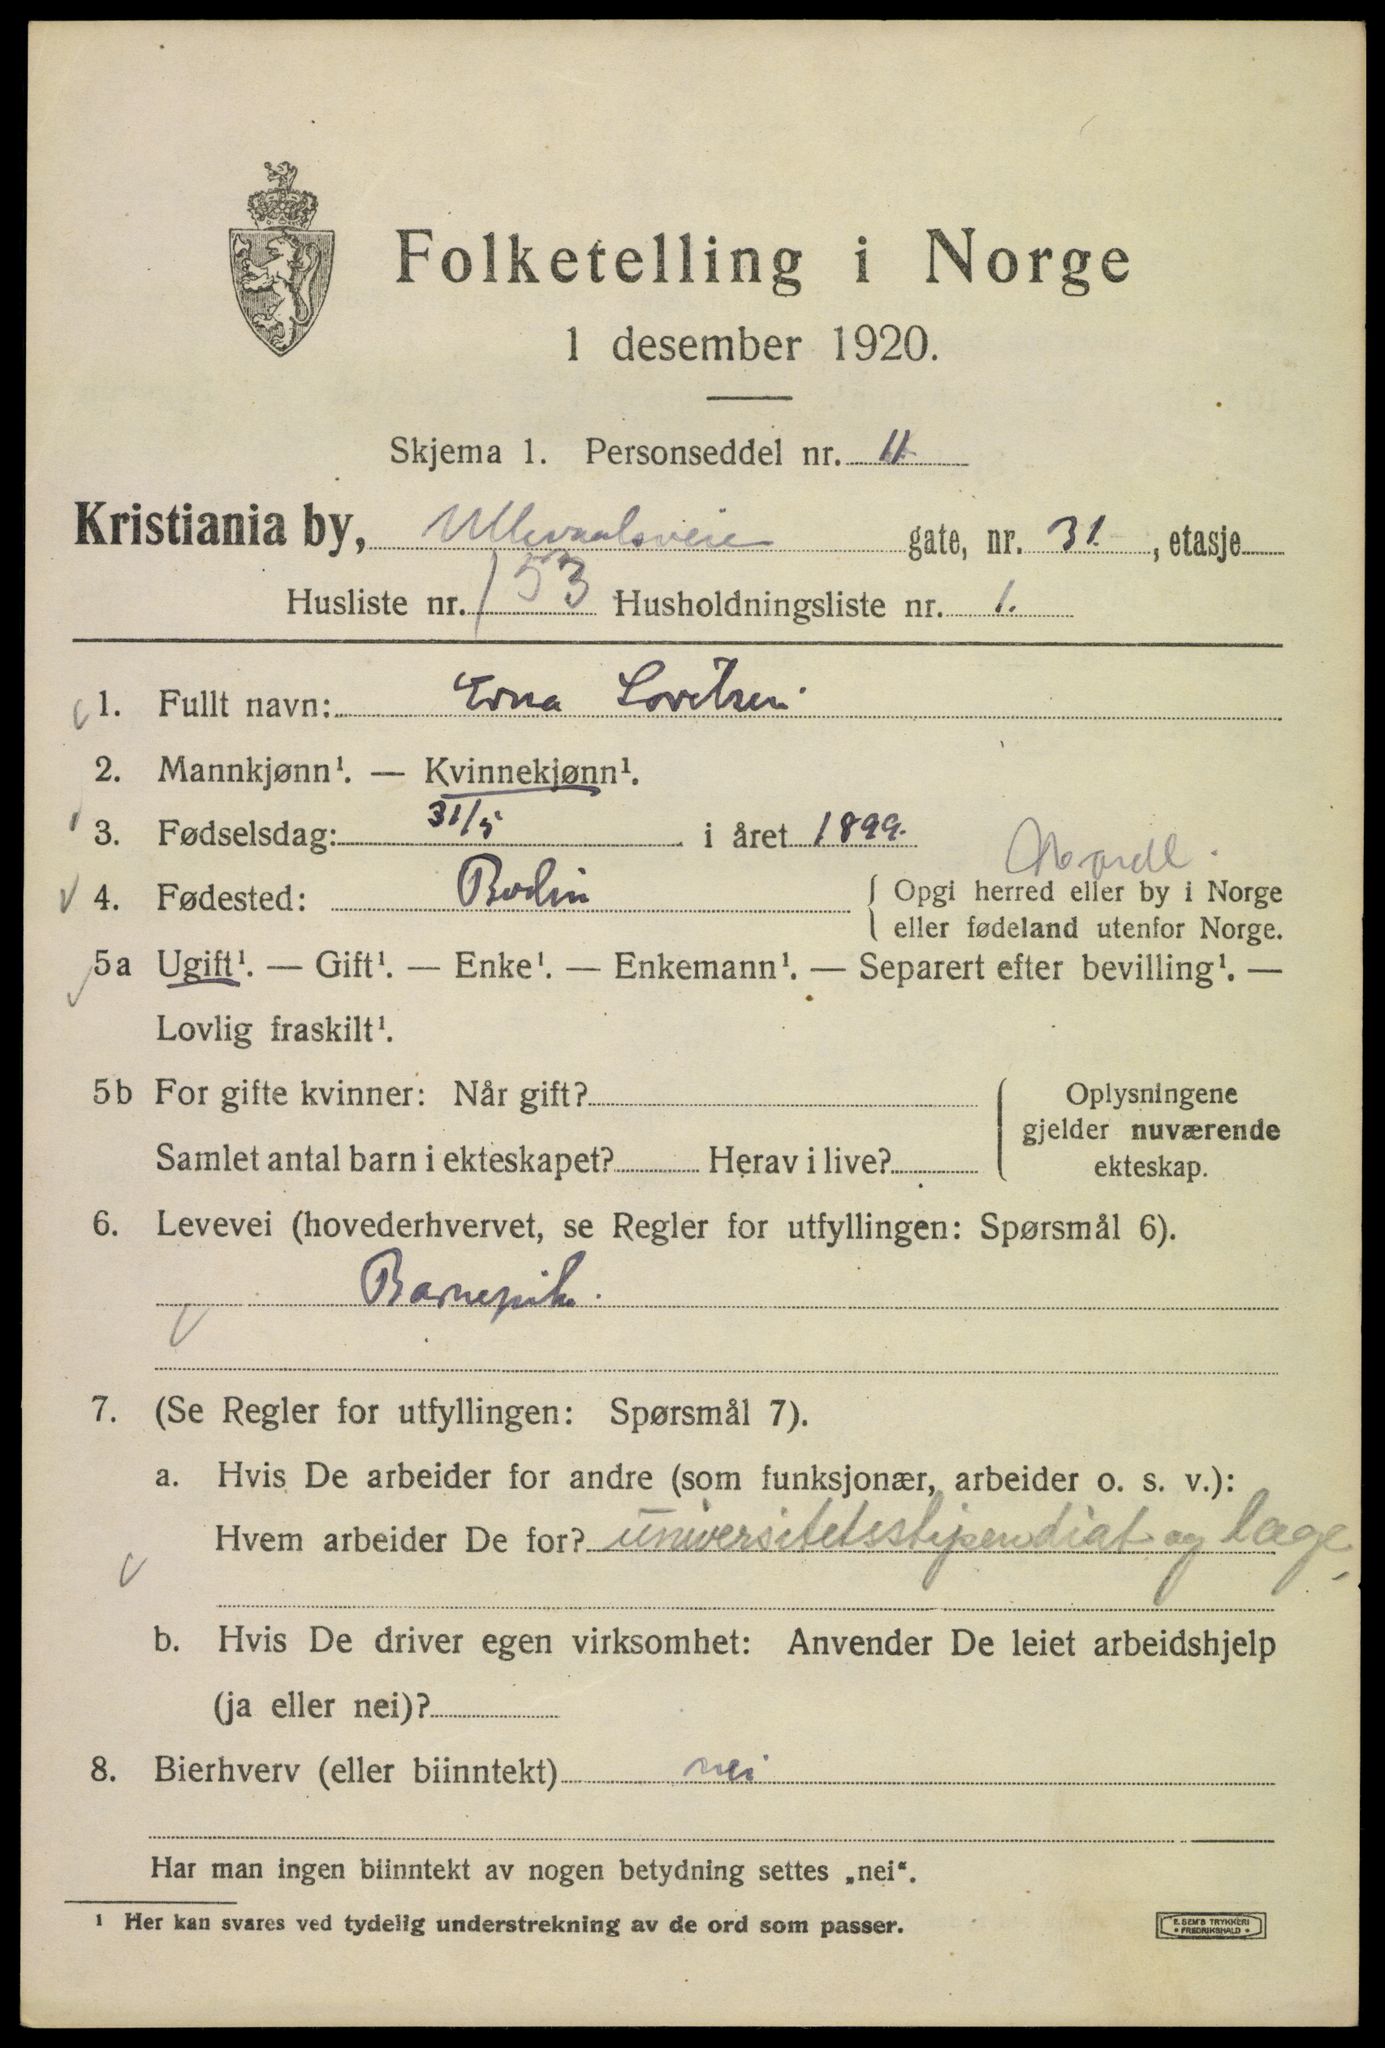 Folketelling i Norge
1 desember 1920.
Skjema 1. Personseddel nr. 11
Kristiania by, Ullevaalsveien gate, nr. 31. , etasje
Husliste nr. 153 Husholdningsliste nr. 1.
1. Fullt navn: Erna Loretsen
2. Mannkjønn¹. — Kvinnekjønn¹.
3. Fødselsdag: 31/5 i året 1899.
Nordl.
4. Fødested: Bodin { Opgi herred eller by i Norge
eller fødeland utenfor Norge.
5a Ugift¹. — Gift¹. — Enke¹. — Enkemann¹. — Separert efter bevilling¹. —
Lovlig fraskilt¹.
5b For gifte kvinner: Når gift? Oplysningene
gjelder nuværende
Samlet antal barn i ekteskapet? Herav i live? ekteskap.
6. Levevei (hovederhvervet, se Regler for utfyllingen: Spørsmål 6).
Barnepike.
7. (Se Regler for utfyllingen: Spørsmål 7).
a. Hvis De arbeider for andre (som funksjonær, arbeider o. s. v.):
Hvem arbeider De for? universitetsstipendiat og læge
b. Hvis De driver egen virksomhet: Anvender De leiet arbeidshjelp
(ja eller nei)?
8. Bierhverv (eller biinntekt) nei
Har man ingen biinntekt av nogen betydning settes „nei“.
¹ Her kan svares ved tydelig understrekning av de ord som passer.
E. SEM'S TRYKKERI
• FREDRIKSHALD •